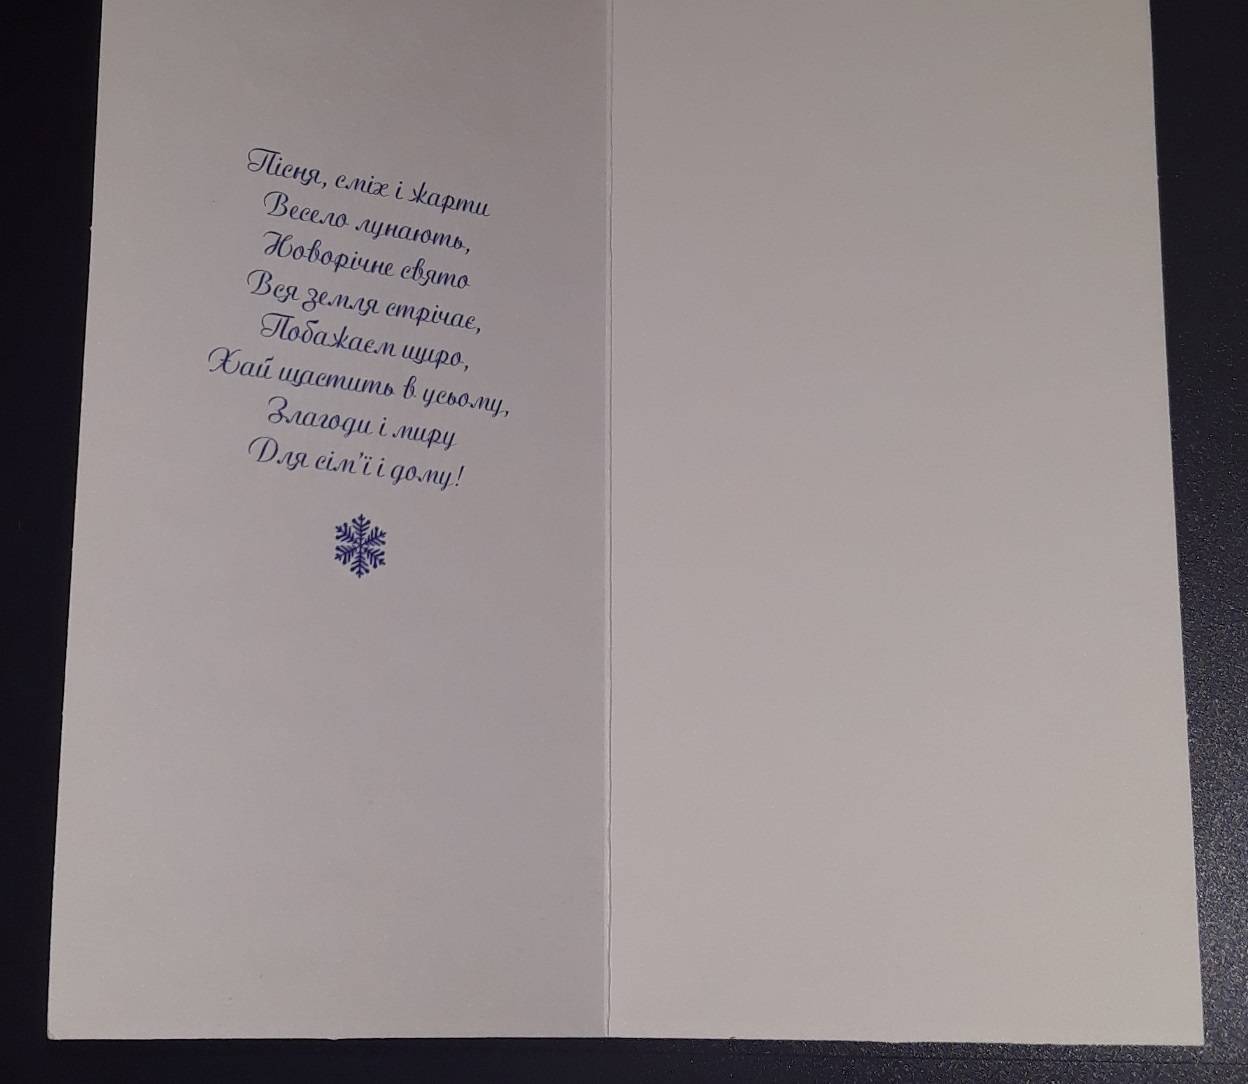 Пісня, сміх і жарти
Весело лунають,
Новорічне свято
Вся земля стрічає,
Побажаєм щиро,
Хай щастить в усьому,
Злагоди і миру
Для сім'ї і дому!